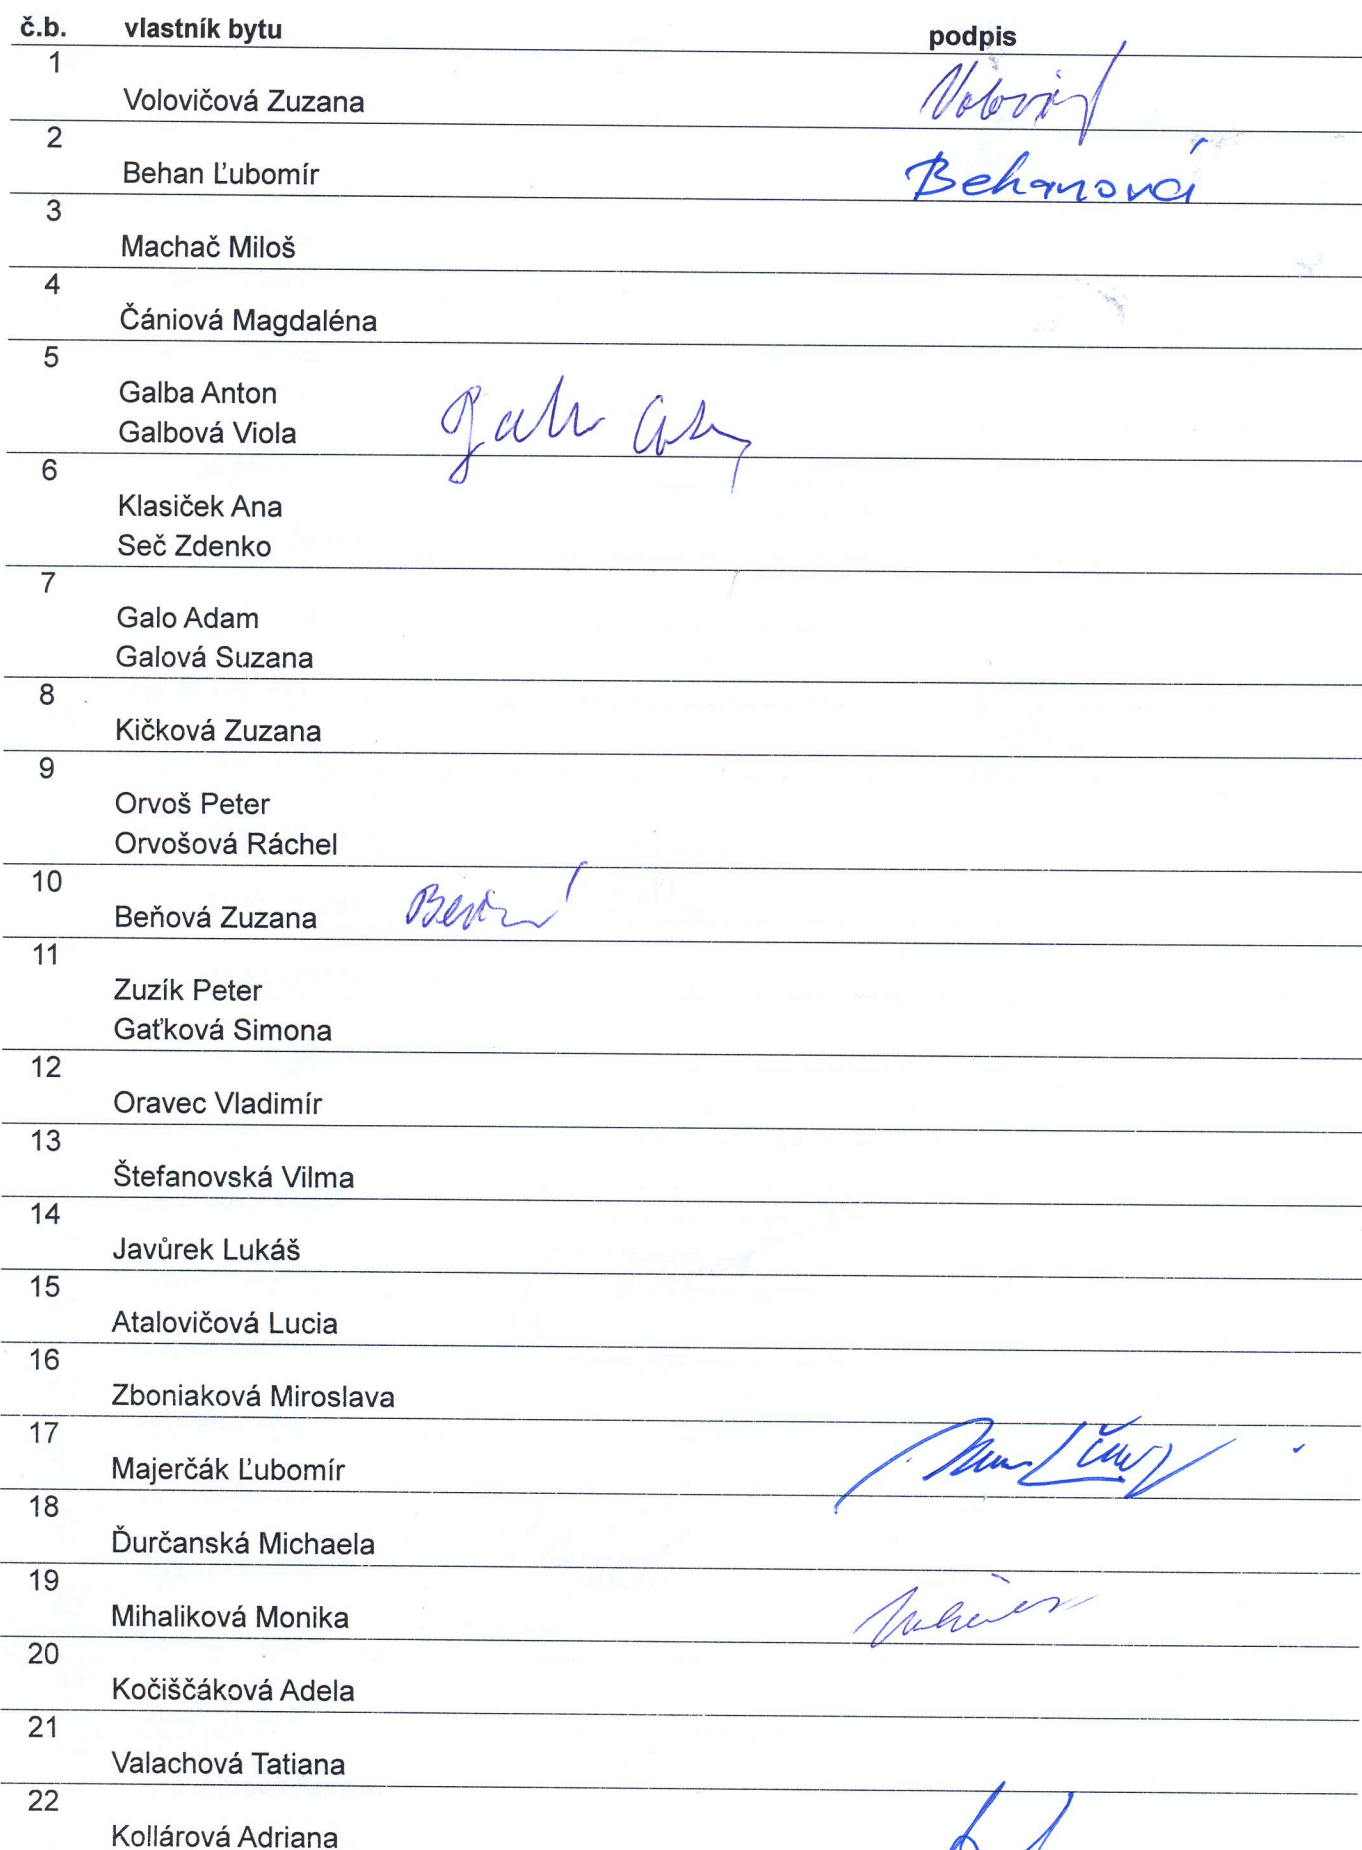 č.b. vlastník bytu podpis
1
Volovičová Zuzana
2
Behan Ľubomír Behanová
3
Machač Miloš
4
Čániová Magdaléna
5
Galba Anton
Galbová Viola
6
Klasiček Ana
Seč Zdenko
7
Galo Adam
Galová Suzana
8
Kičková Zuzana
9
Orvoš Peter
Orvošová Ráchel
10
Beňová Zuzana
11
Zuzík Peter
Gaťková Simona
12
Oravec Vladimír
13
Štefanovská Vilma
14
Javůrek Lukáš
15
Atalovičová Lucia
16
Zboniaková Miroslava
17
Majerčák Ľubomír
18
Ďurčanská Michaela
19
Mihaliková Monika
20
Kočiščáková Adela
21
Valachová Tatiana
22
Kollárová Adriana